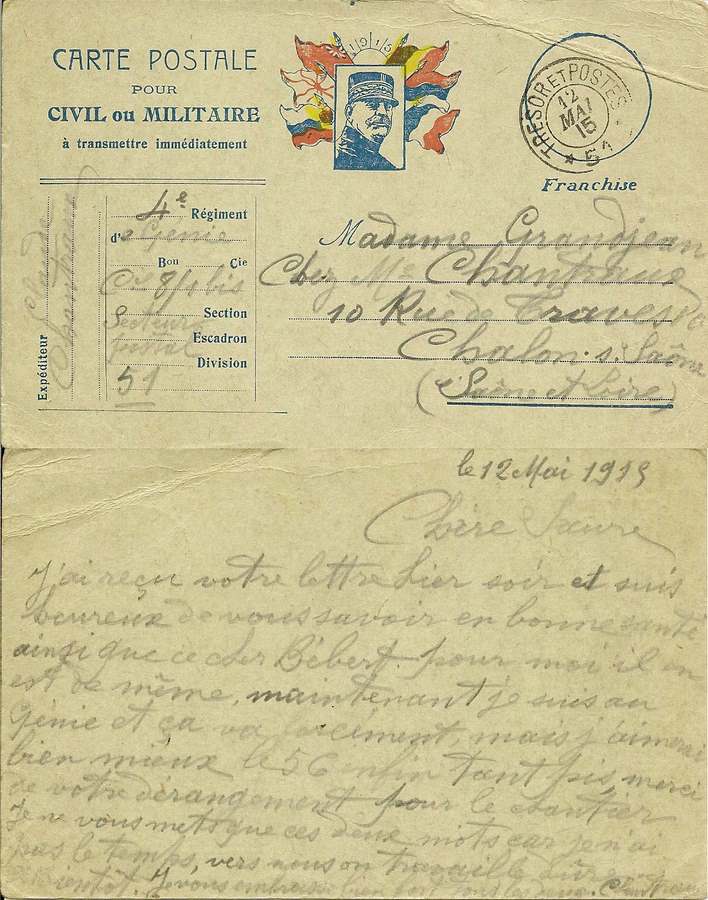 CARTE POSTALE
POUR
CIVIL ou MILITAIRE
à transmettre immédiatement
1915
TRESOR ET POSTES
12
MAI
15
* 51 *
Franchise
Expéditeur
Claude
Chantraux
4e Régiment
d'e Génie
Bon Cie
Cie 8/4 bis
Section
Secteur
Escadron
postal
Division
51
Madame Grandjean
Chez Me Chantraux
10 Rue de Traves
Chalon-s-Saône
(Saône et Loire)
le 12 Mai 1915
Chère Soeure
J'ai reçu votre lettre hier soir et suis
heureux de vous savoir en bonne santé
ainsi que ce cher Bébert. pour moi il en
est de même, maintenant je suis au
Génie et ça va forcément, mais j'aimerai
bien mieux le 56 enfin tant pis, merci
de votre dérangement pour le chantier
Je ne vous mets que ces deux mots car je n'ai
pas le temps, vers nous on travaille dure
bientôt. Je vous embrasse bien fort tous les deux. Chantraux